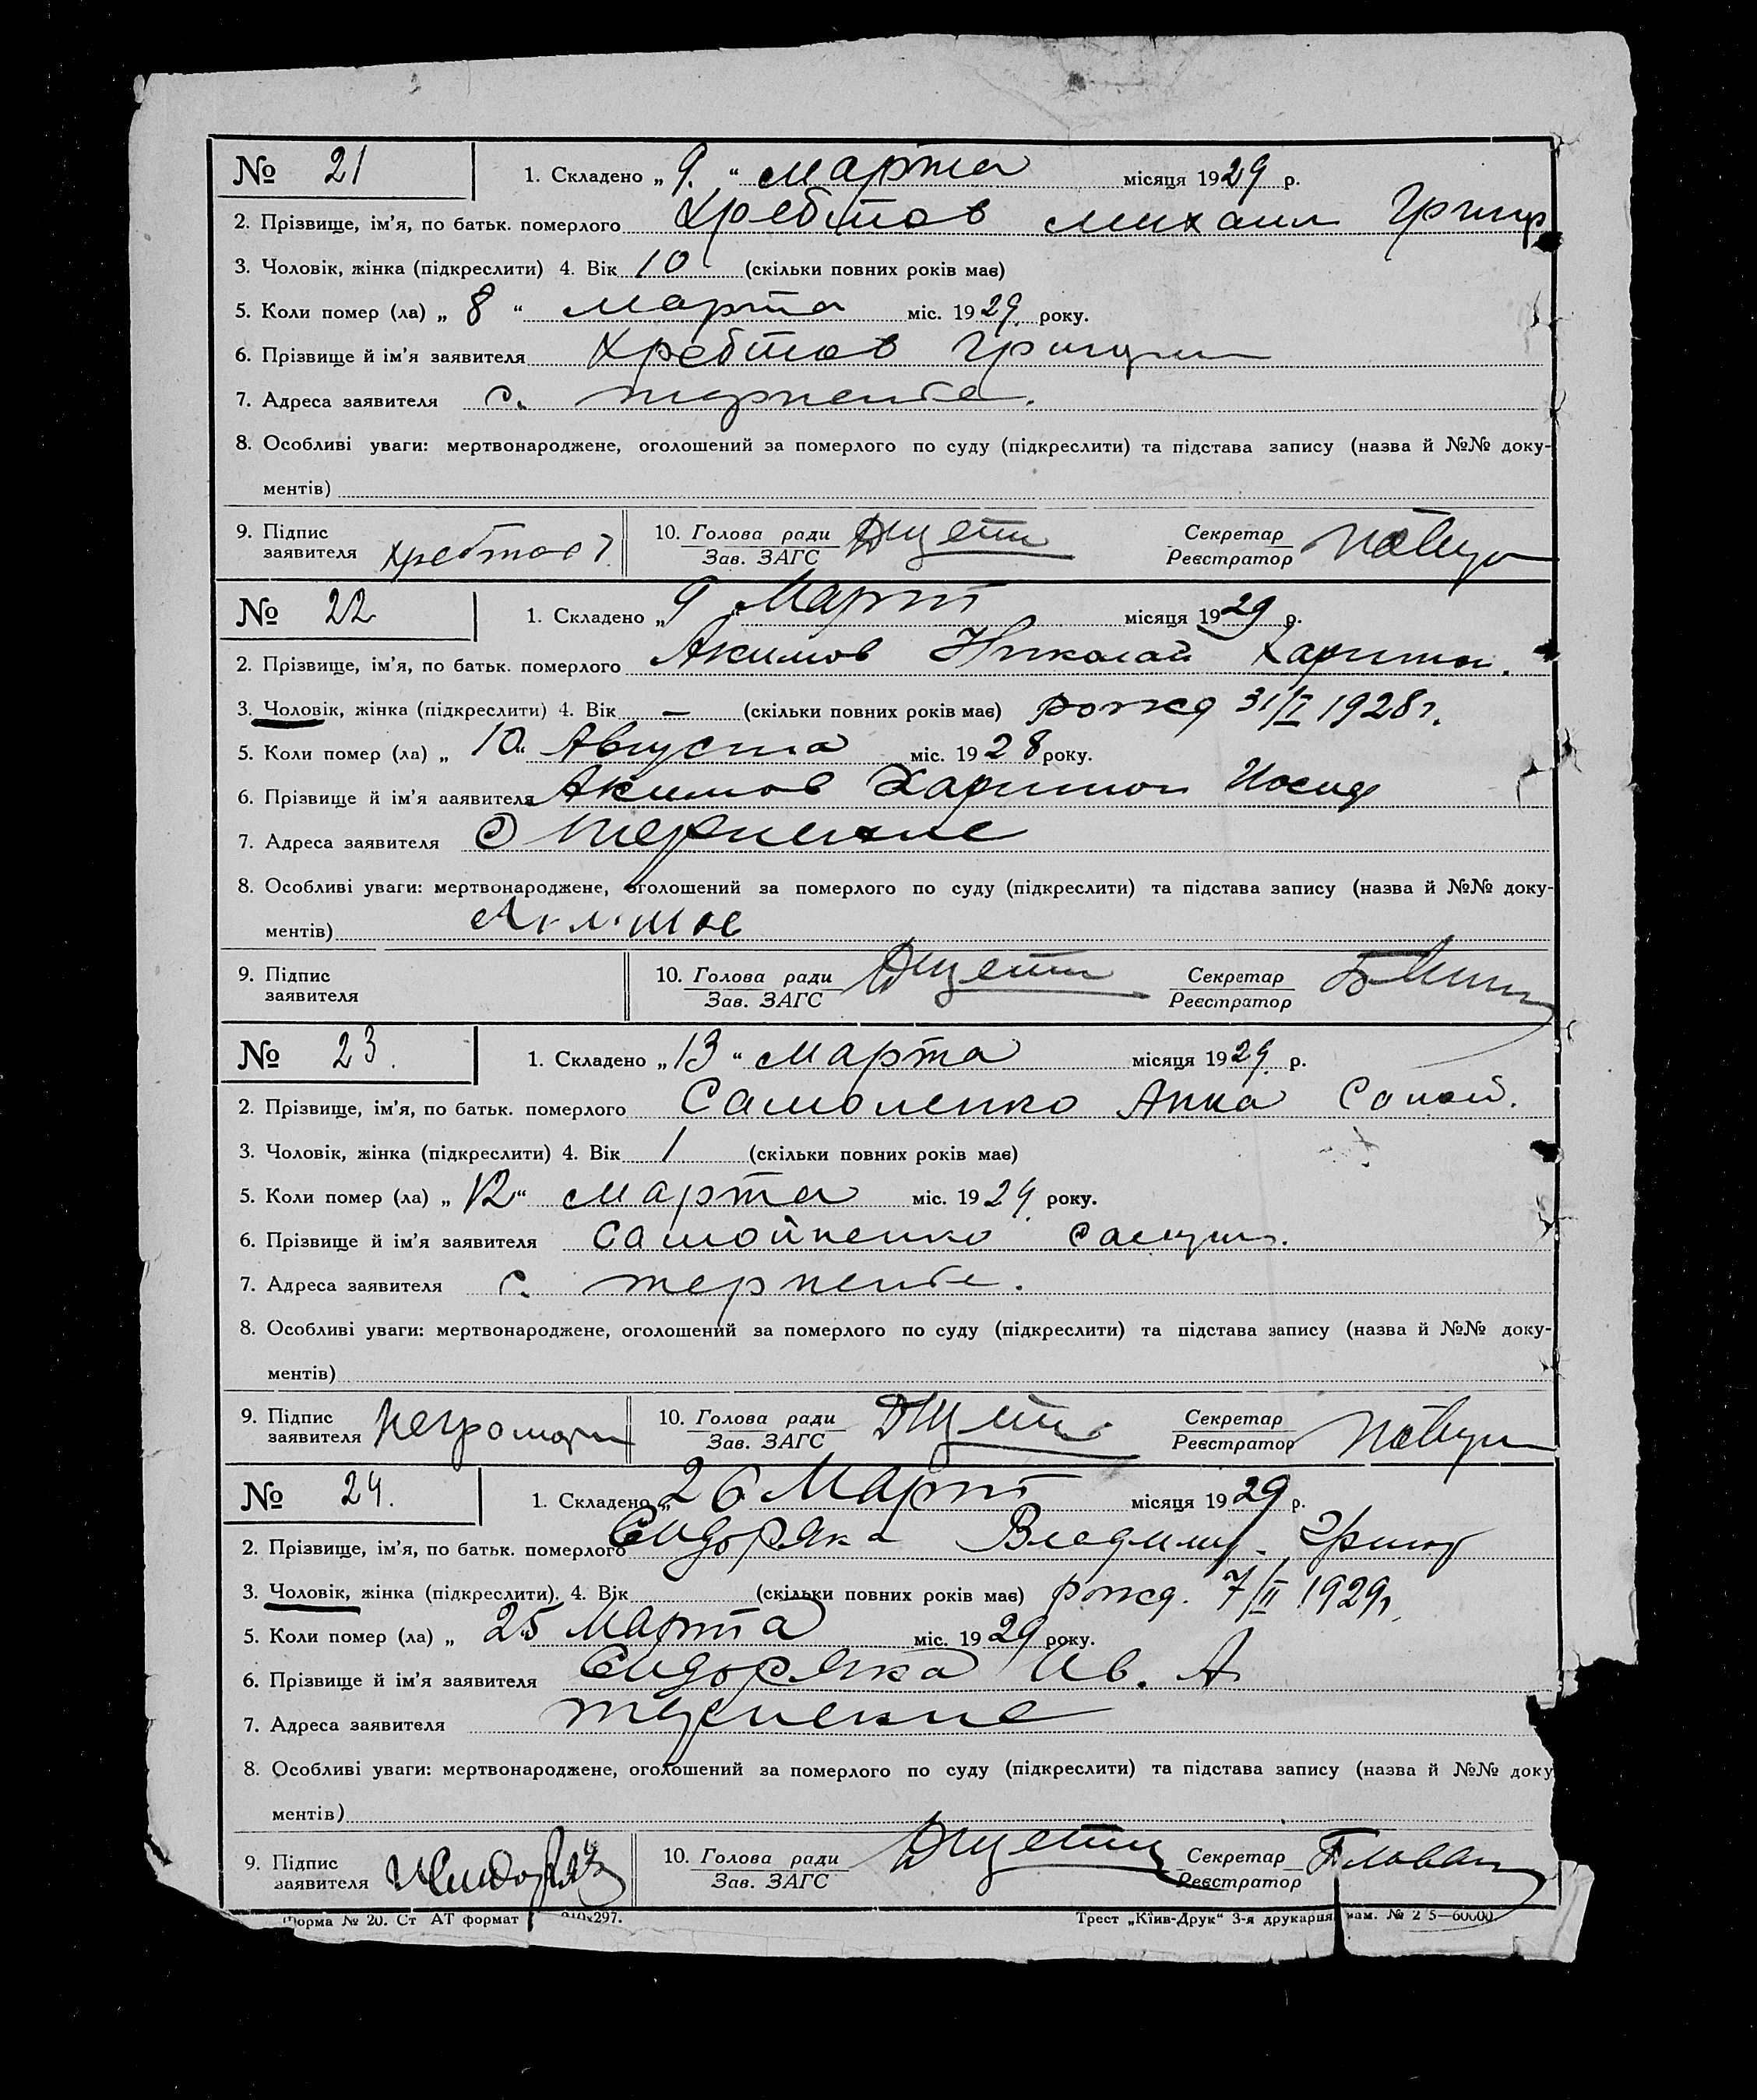 № 21 1. Складено „ 9. “ марта місяця 1929 р.
2. Прізвище, ім’я, по батьк. померлого Хребтов Михаил Григор
3. Чоловік, жінка (підкреслити) 4. Вік 10 (скільки повних років має)
5. Коли помер (ла) „ 8 “ марта міс. 1929 року.
6. Прізвище й ім’я заявителя Хребтов Григори
7. Адреса заявителя с. терпение.
8. Особливі уваги: мертвонароджене, оголошений за померлого по суду (підкреслити) та підстава запису (назва й №№ доку-
ментів)
9. Підпис заявителя Хребтов 10. Голова ради Зав. ЗАГС Секретар Реєстратор
№ 22 1. Складено „ 9 “ Март місяця 1929 р.
2. Прізвище, ім’я, по батьк. померлого Акимов Николай Харитон.
3. Чоловік, жінка (підкреслити) 4. Вік – (скільки повних років має) рожд 31/I 1928 г.
5. Коли помер (ла) „ 10 “ Августа міс. 1928 року.
6. Прізвище й ім’я заявителя Акимов Харитон Иосиф
7. Адреса заявителя с Терпение
8. Особливі уваги: мертвонароджене, оголошений за померлого по суду (підкреслити) та підстава запису (назва й №№ доку-
ментів) Акимов
9. Підпис заявителя 10. Голова ради Зав. ЗАГС Секретар Реєстратор
№ 23. 1. Складено „ 13 “ марта місяця 1929 р.
2. Прізвище, ім’я, по батьк. померлого Самоленко Анна
3. Чоловік, жінка (підкреслити) 4. Вік 1 (скільки повних років має)
5. Коли помер (ла) „ 12 “ марта міс. 1929 року.
6. Прізвище й ім’я заявителя Самойленко
7. Адреса заявителя с. терпение.
8. Особливі уваги: мертвонароджене, оголошений за померлого по суду (підкреслити) та підстава запису (назва й №№ доку-
ментів)
9. Підпис заявителя 10. Голова ради Зав. ЗАГС Секретар Реєстратор
№ 24. 1. Складено „ 26 Март місяця 1929 р.
2. Прізвище, ім’я, по батьк. померлого Сидоряка Владимир. Григор
3. Чоловік, жінка (підкреслити). 4. Вік (скільки повних років має) рожд. 7/II 1929 г.
5. Коли помер (ла) „ 25 Марта міс. 1929 року.
6. Прізвище й ім’я заявителя Сидоряка Ив. А
7. Адреса заявителя терпение
8. Особливі уваги: мертвонароджене, оголошений за померлого по суду (підкреслити) та підстава запису (назва й №№ доку
ментів)
9. Підпис заявителя 10. Голова ради Зав. ЗАГС Секретар Реєстратор
Форма № 20. Ст АТ формат 297. Трест „Київ-Друк“ 3-я друкарня